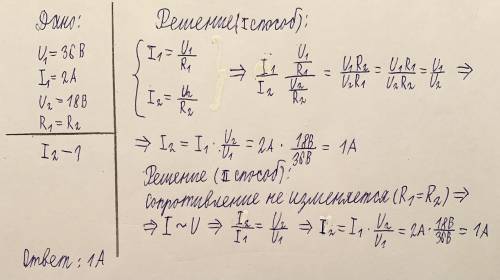 Дано:
U₁=36В
I₁=2А
U₂=18В
R₁=R₂
I₂-?
Ответ: 1А
Решение(I способ):
{ I₁=U₁/R₁
I₂=U₂/R₂ } ⇒ I₁/I₂ = (U₁/R₁)/(U₂/R₂) = U₁R₂/U₂R₁ = U₁R₁/U₂R₂ = U₁/U₂ ⇒
⇒ I₂=I₁·U₂/U₁=2А·18В/36В=1А
Решение (II способ):
Сопротивление не изменяется(R₁=R₂)⇒
⇒ I~U ⇒ I₂/I₁=U₂/U₁ ⇒ I₂=I₁·U₂/U₁=2А·18В/36В=1А